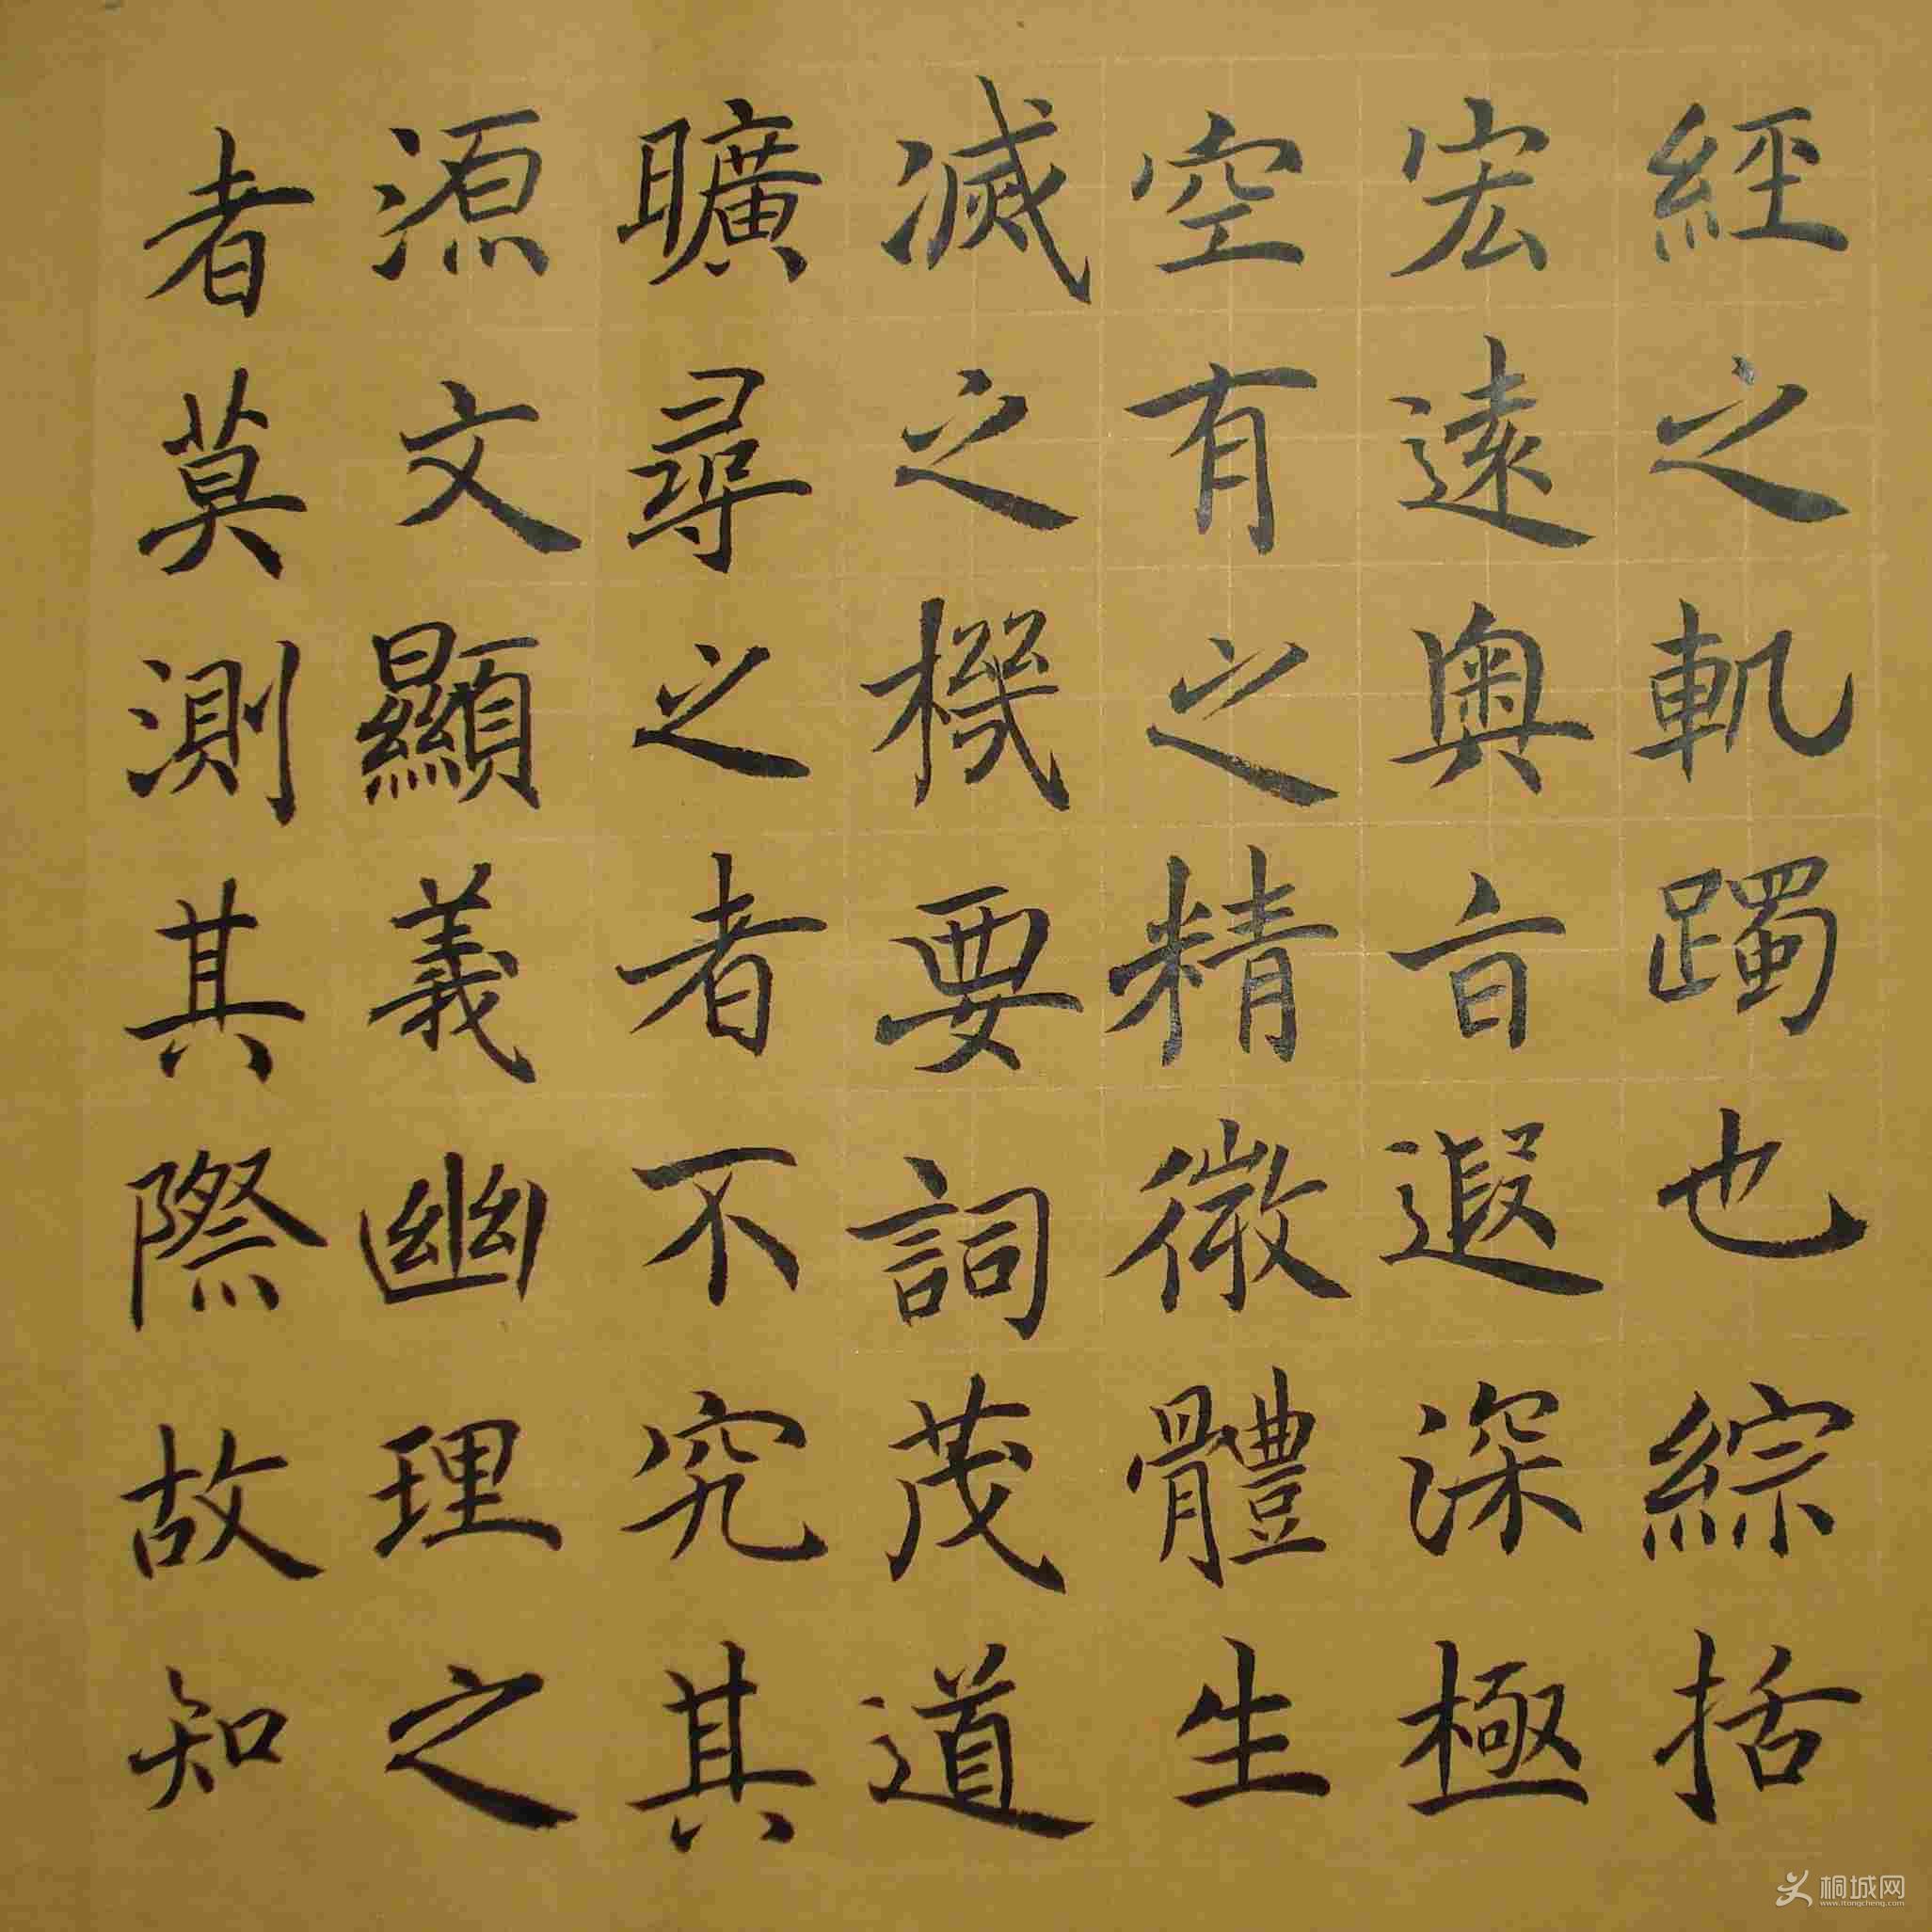 經之軌躅也綜括
宏遠奧旨遐深極
空有之精微體生
滅之機要詞茂道
曠尋之者不究其
源文顯義幽理之
者莫測其際故知
桐城网
www.itongcheng.com